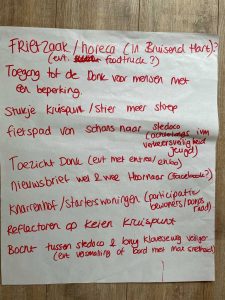 Frietzaak / horeca (in Bruisend Hart)?
(evt. foodtruck?)
Toegang tot de Donk voor mensen met
een beperking.
Stukje kruispunt / stier meer stoep
fietspad van schans naar stedoco
(achterlangs ivm
verkeersveiligheid
jeugd)
Toezicht Donk (evt met entree/ehbo)
Nieuwsbrief wel & wee Hoornaar (facebook?)
Knarrenhof / starterswoningen (participatie
bewoners/dorps
raad)
Reflectoren op keien kruispunt
Bocht tussen stedoco & lange klaverweg veiliger
(evt versmalling of bord met max snelheid)